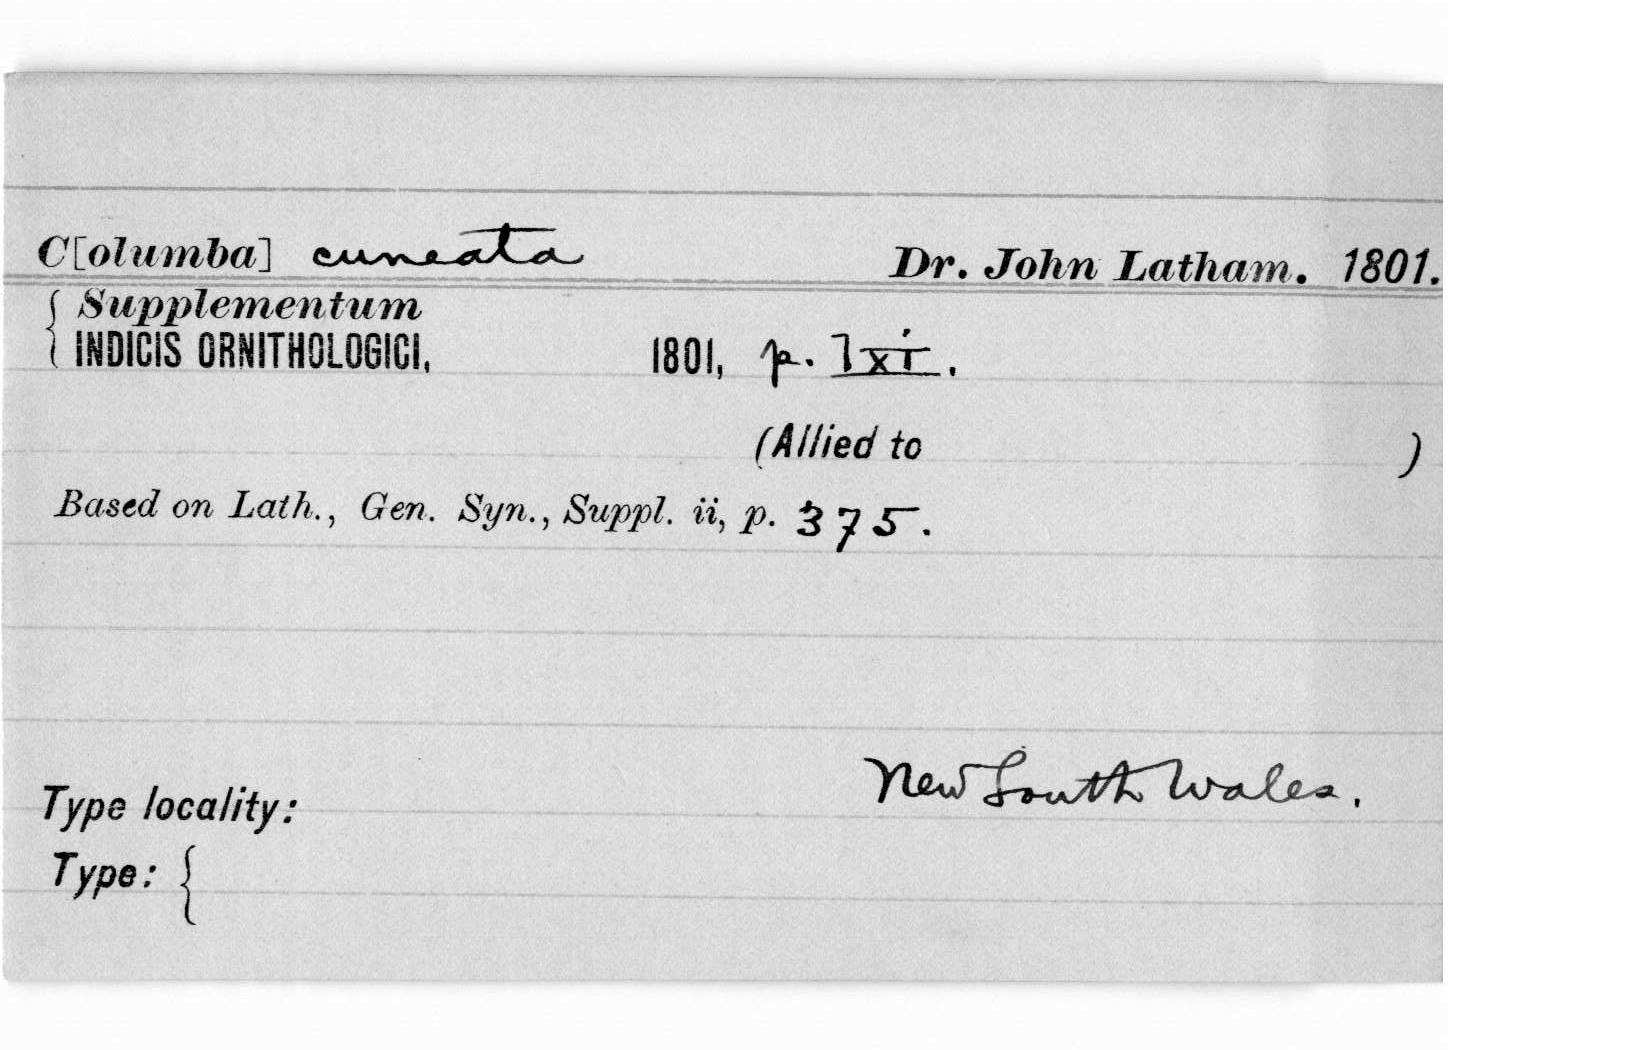 C[olumba] cuneata Dr. John Latham. 1801.
{ Supplementum
INDICIS ORNITHOLOGICI, 1801, p. lxi.
(Allied to )
Based on Lath., Gen. Syn., Suppl. ii, p. 375.
New South Wales.
Type locality:
Type: {